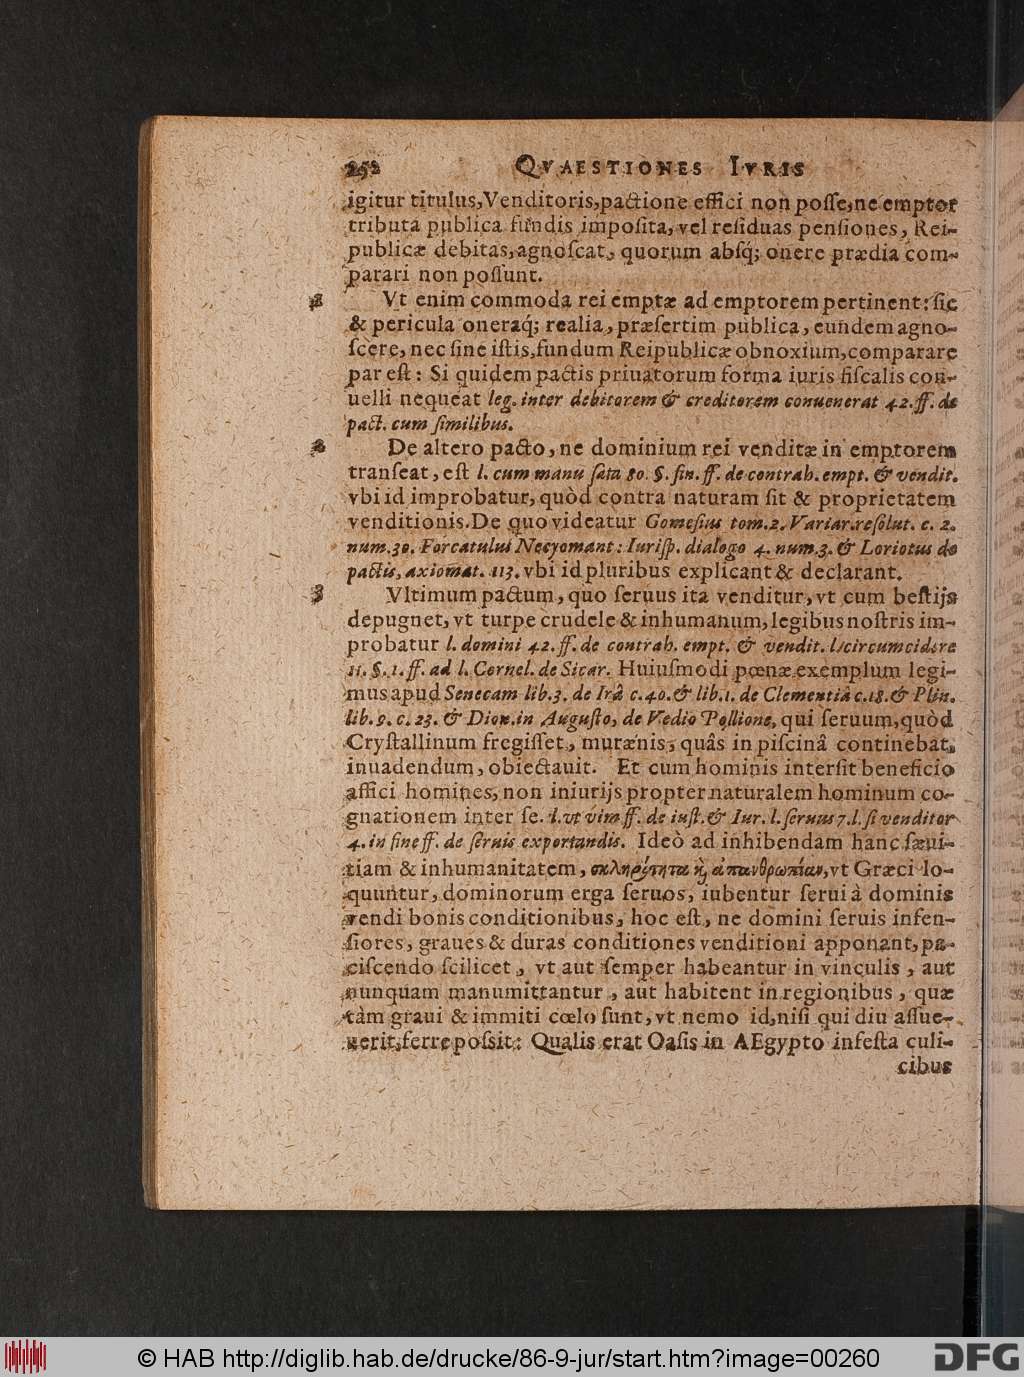 252 QVAESTIONES IVRIS
igitur titulus, Venditoris, pactione effici non poſſe, ne emptor
tributa publica fundis impoſita, vel reſiduas penſiones, Rei-
publicæ debitas, agnoſcat, quorum abſq́; onere prædia com-
parari non poſſunt.
Vt enim commoda rei emptæ ad emptorem pertinent: ſic
& pericula oneraq́; realia, præſertim publica, eundem agno-
ſcere, nec ſine iſtis, fundum Reipublicæ obnoxium, comparare
par eſt: Si quidem pactis priuatorum forma iuris fiſcalis con-
uelli nequeat leg. inter debitorem & creditorem conuenerat 42. ff. de
pact. cum ſimilibus.
De altero pacto, ne dominium rei venditæ in emptorem
tranſeat, eſt l. cum manu ſata 80. §. fin. ff. de contrah. empt. & vendit.
vbi id improbatur, quòd contra naturam ſit & proprietatem
venditionis. De quo videatur Gomeſius tom. 2. Variar. reſolut. c. 2.
num. 30. Forcatului Necyomant: Iuriſp. dialogo 4. num. 3. & Loriotus de
pactis, axiomat. 113. vbi id pluribus explicant & declarant.
3 Vltimum pactum, quo ſeruus ita venditur, vt cum beſtijs
depugnet, vt turpe crudele & inhumanum, legibus noſtris im-
probatur l. domini 42. ff. de contrah. empt. & vendit. l. circumcidere
11. §. 1. ff. ad l. Cornel. de Sicar. Huiuſmodi pœnæ exemplum legi-
mus apud Senecam lib. 3. de Irâ c. 40. & lib. 1. de Clementiâ c. 18. & Plin.
lib. 9. c. 23. & Dion. in Auguſto, de Vedio Pollione, qui ſeruum, quòd
Cryſtallinum fregiſſet, murænis, quâs in piſcinâ continebat,
inuadendum, obiectauit. Et cum hominis interſit beneficio
affici homines, non iniurijs propter naturalem hominum co-
gnationem inter ſe. l. vt vim ff. de iuſt. & Iur. l. ſeruus 7. l. ſi venditor
4. in fine ff. de ſeruis exportandis. Ideò ad inhibendam hanc ſæui-
tiam & inhumanitatem, σκληρότητα ϗ̀ ἀπανθρωπίαν, vt Græci lo-
quuntur, dominorum erga ſeruos, iubentur ſerui à dominis
vendi bonis conditionibus, hoc eſt, ne domini ſeruis infen-
ſiores, graues & duras conditiones venditioni apponant, pa-
ciſcendo ſcilicet, vt aut ſemper habeantur in vinculis, aut
nunquam manumittantur, aut habitent in regionibus, quæ
tàm graui & immiti cœlo ſunt, vt nemo id, niſi qui diu aſſue-
uerit, ferre poſsit: Qualis erat Oaſis in AEgypto infeſta culi-
cibus
© HAB http://diglib.hab.de/drucke/86-9-jur/start.htm?image=00260
DFG